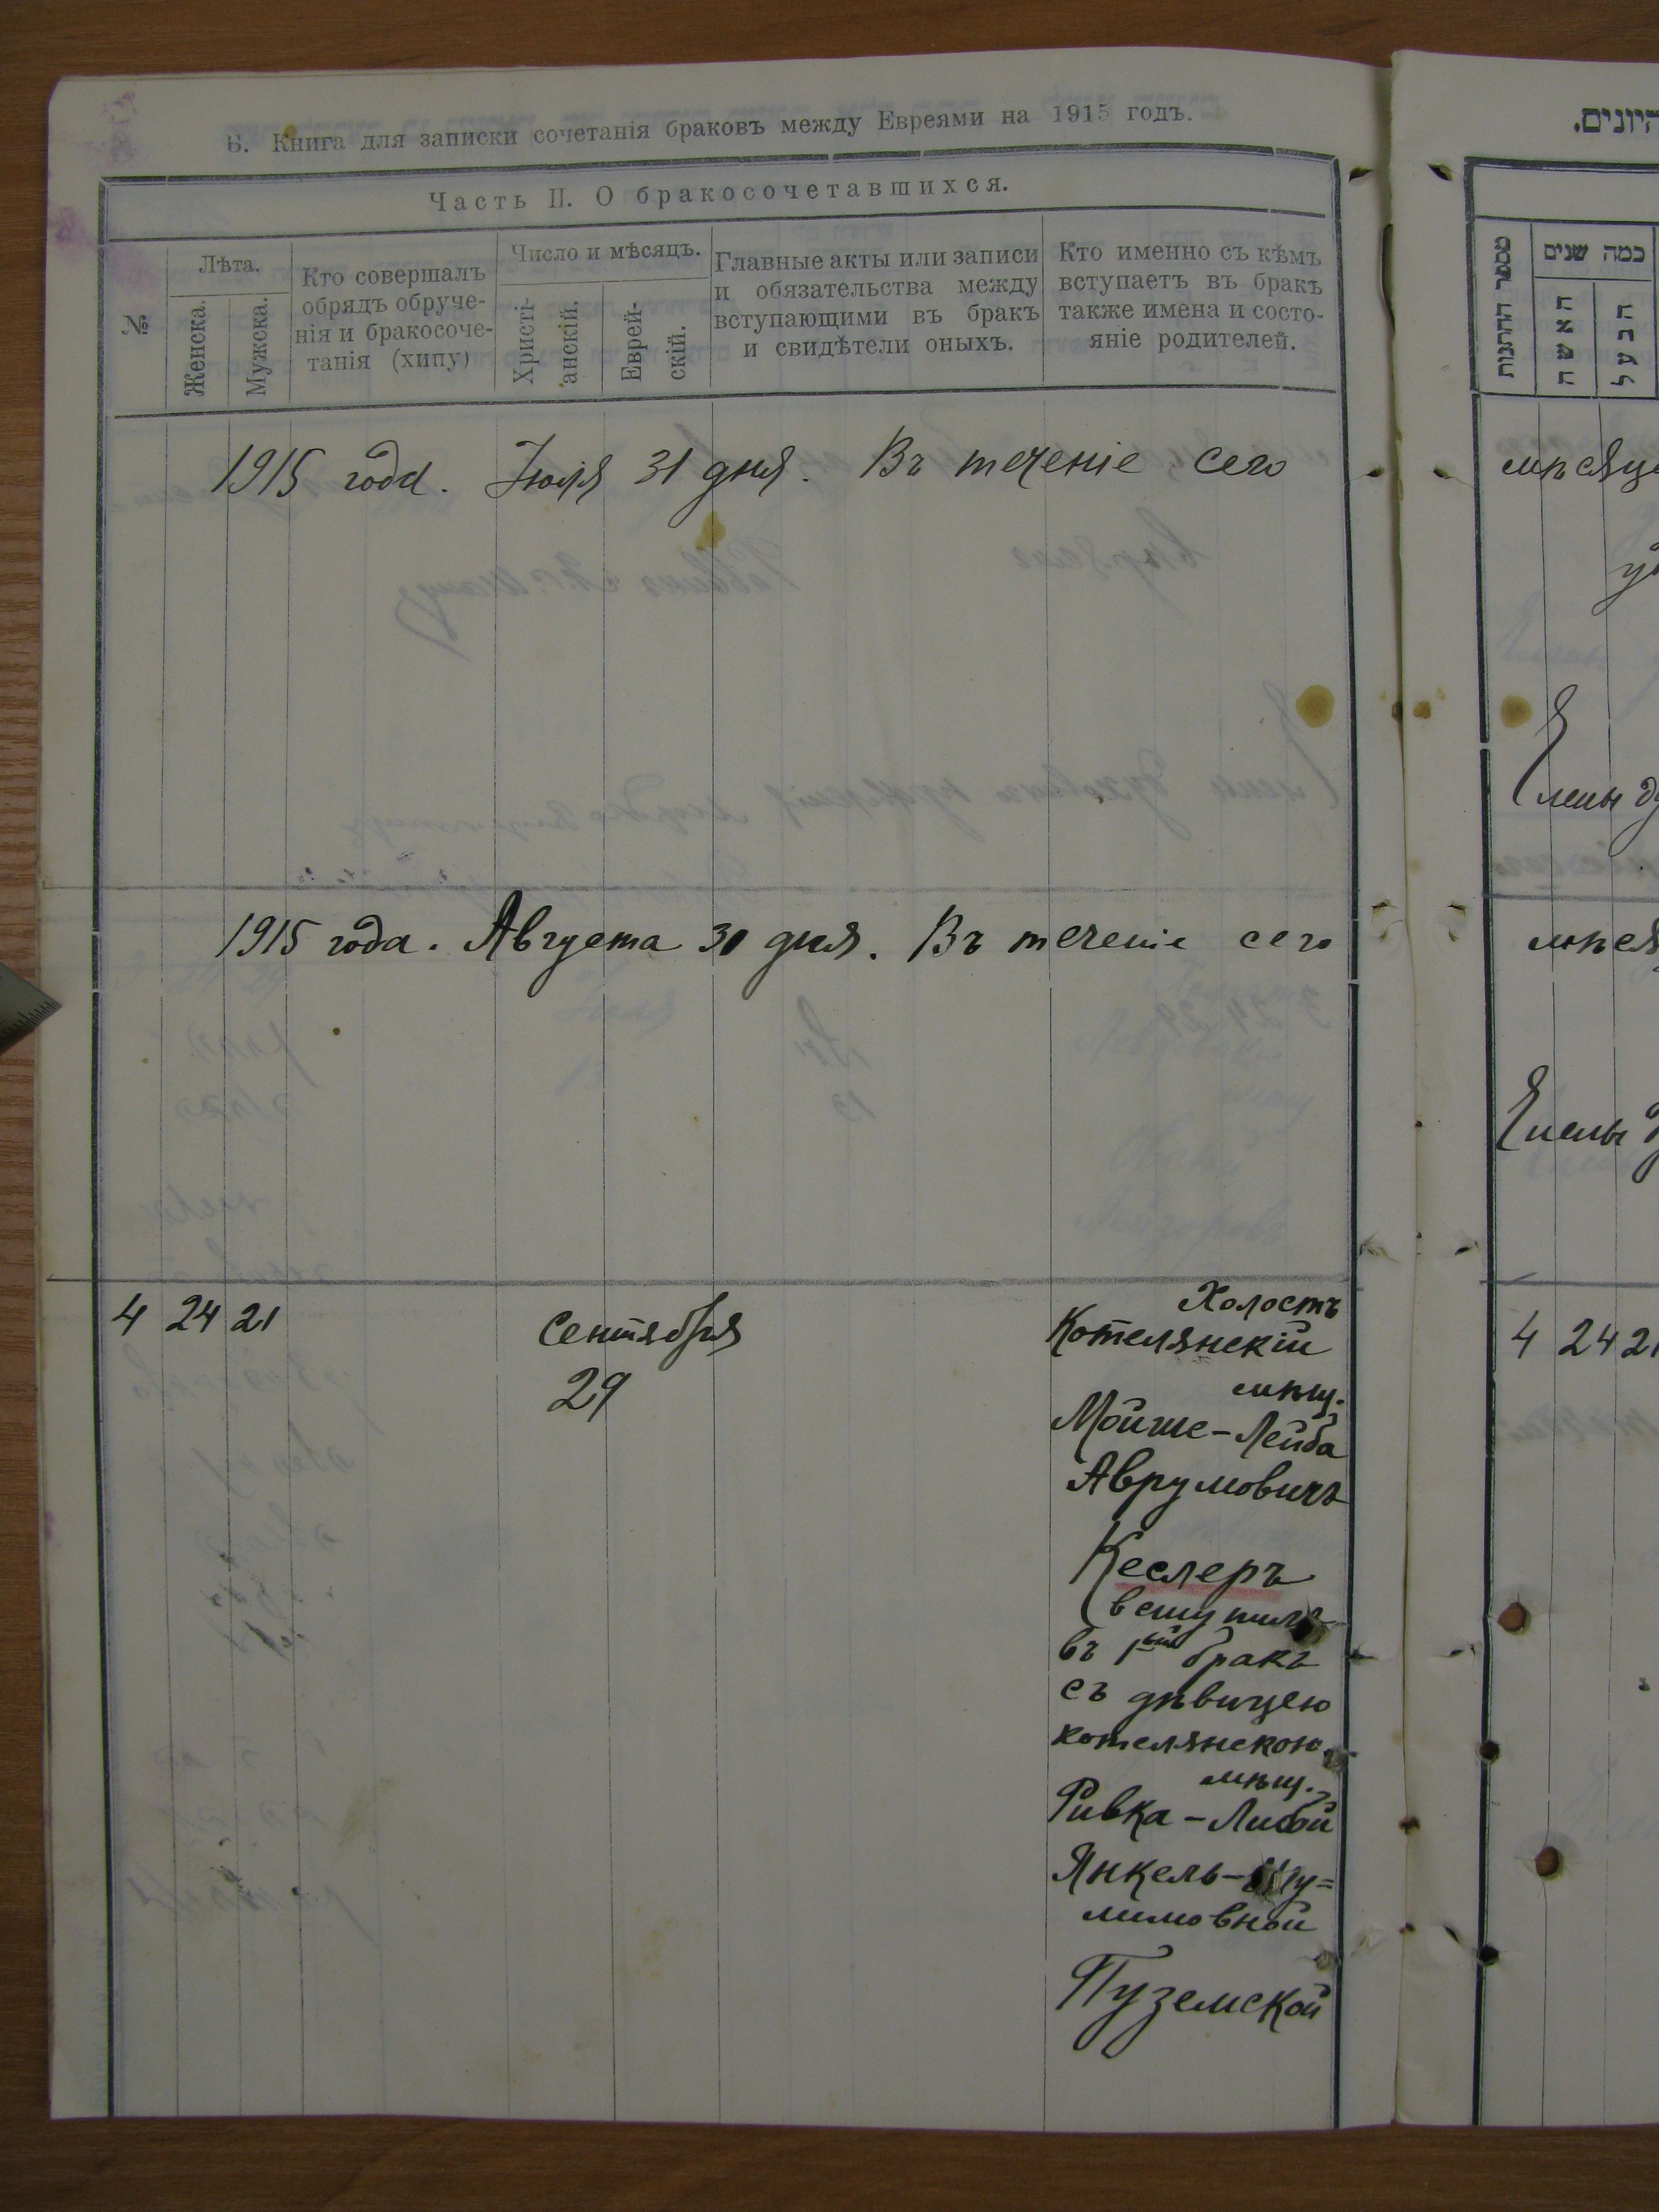 В. Книга для записки сочетанія браковъ между Евреями на 1915 годъ.
Часть II. О бракосочетавшихся.
№
Лѣта.
Женска.
Мужска.
Кто совершалъ
обрядъ обруче-
нія и бракосоче-
танія (хипу)
Число и мѣсяцъ.
Христі-
анскій.
Еврей-
скій.
Главные акты или записи
и обязательства между
вступающими въ бракъ
и свидѣтели оныхъ.
Кто именно съ кѣмъ
вступаетъ въ бракъ
также имена и состо-
яніе родителей.
1915 года. Іюля 31 дня. Въ теченіе сего
1915 года. Августа 30 дня. Въ теченіе сего
4 24 21
Сентября
29
Холостъ
Котелянскій
мѣщ.
Мойше-Лейба
Аврумовичъ
Кеслеръ
вступилъ
въ 1ый бракъ
съ дѣвицею
котелянскою
мѣщ.
Ривка-Либой
Янкель-
лимовной
Пуземской
היונים.
מספר החתונות
כמה שנים
האשה
הבעל
Члены
Члены
4 24 21